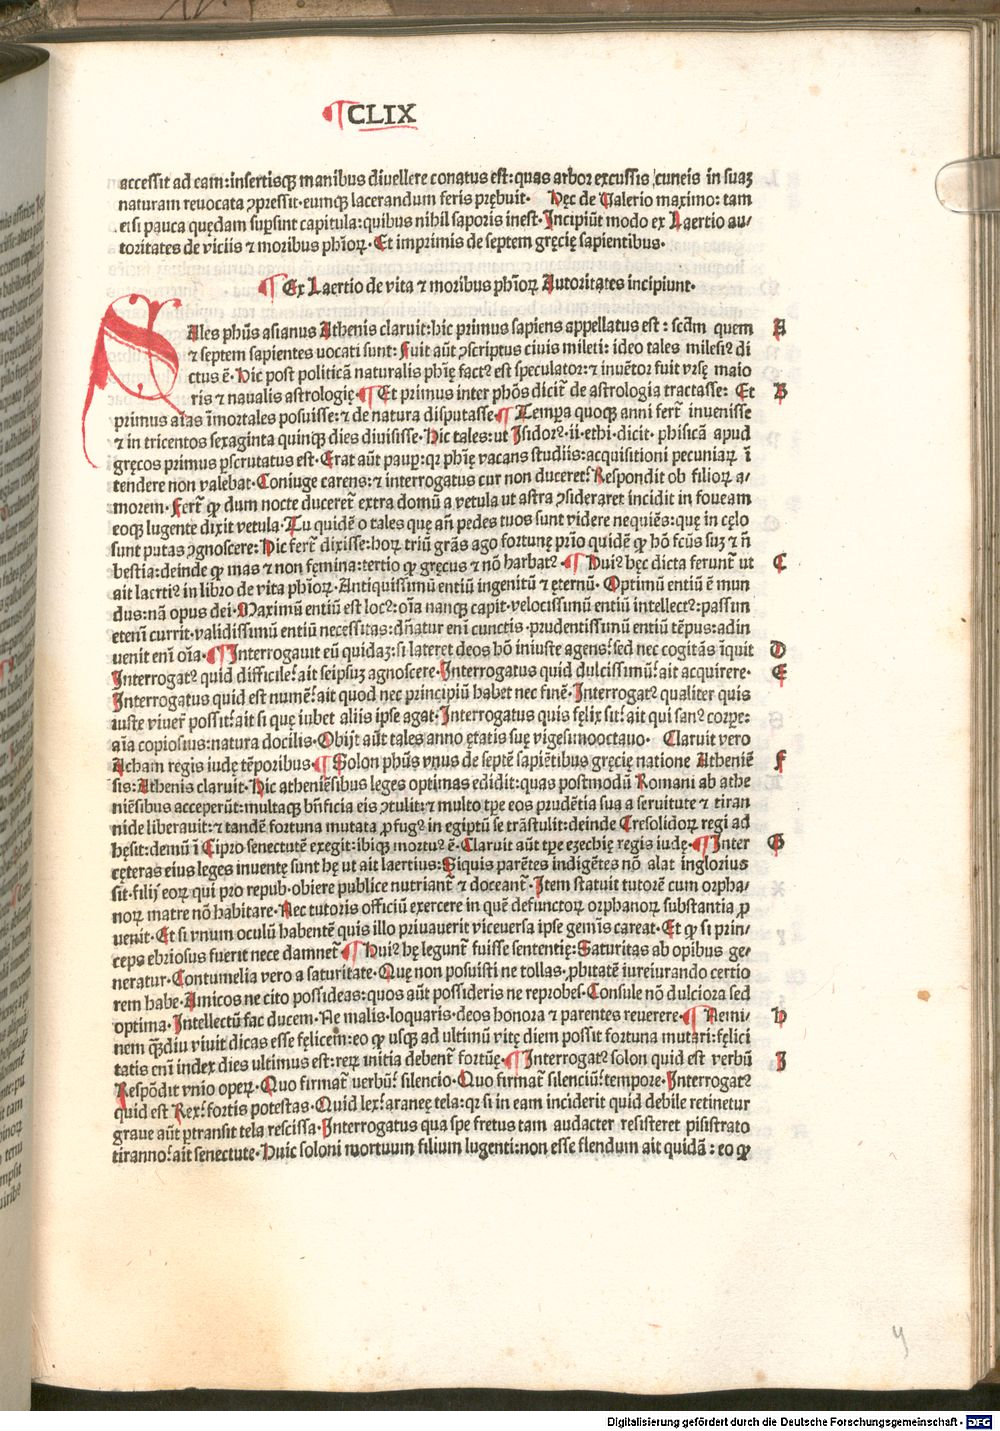 ¶CLIX
accessit ad eam:insertisqꝫ manibus divellere conatus est:quas arbor excussis cuneis in suaꝫ
naturam revocata ꝯpressit·eumqꝫ lacerandum feris prębuit· Hęc de Valerio maximo: tam
et si pauca quędam supsint capitula:quibus nihil saporis inest·Incipiūt modo ex Laertio au/
toritates de viciis ⁊ moribus ph̄ioꝝ· Et imprimis de septem gręcię sapientibus·
¶ Ex Laertio de vita ⁊ moribus ph̄ioꝝ Autoritates incipiunt·
Ales ph̄us asianus Athenis claruit:hic primus sapiens appellatus est : scd̄m quem A
⁊ septem sapientes vocati sunt: fuit aūt ꝯscriptus civis mileti: ideo tales milesiꝰ di
ctus ē· Hic post politicā naturalis ph̄ię factꝰ est speculator:⁊ invētor fuit vrsę maio
ris ⁊ navalis astrologię·¶ Et primus inter ph̄os dicit̄ de astrologia tractasse: Et B
primus aīas īmortales posuisse:⁊ de natura disputasse·¶ Tempꝑa quoqꝫ anni fert̄ invenisse
⁊ in tricentos sexaginta quinqꝫ dies divisisse· Hic tales:ut Isidorꝰ·ii·ethi·dicit· phisicā apud
gręcos primus pscrutatus est·Erat aūt paup:qꝛ ph̄ię vacans studiis:acquisitioni pecuniaꝝ ī
tendere non valēbat·Coniuge carens:⁊ interrogatus cur non duceret: Respondit ob filioꝝ a/
morem· Fert̄ ꝙ dum nocte duceret̄ extra domū a vetula ut astra ꝯsideraret incidit in foveam
eoqꝫ lugente dixit vetula· Tu quidē o tales que añ pedes tuos sunt videre nequiēs:que in cęlo
sunt putas ꝯgnoscere: Hic fert̄ dixisse:hoꝝ triū grās ago fortunę prīo quidē ꝙ hō fcūs suꝫ ⁊ ñ
bestia:deinde ꝙ mas ⁊ non fęmina:tertio ꝙ gręcus ⁊ nō barbatꝰ·¶ Huiꝰ hęc dicta ferunt̄ ut C
ait laertiꝰ in libro de vita ph̄ioꝝ·Antiquissimū entiū ingenitū ⁊ ęternū· Optimū entiū ē mun
dus:nā opus dei·Maximū entiū est locꝰ:oīa nanqꝫ capit·velocissimū entiū intellectꝰ:passim
etenī currit·validissimū entiū necessitas:dn̄atur enī cunctis·prudentissimū entiū tēpus:adin
venit enī oīa·¶Interrogavit eū quidaꝫ:si lateret deos hō iniuste agens:sed nec cogitās īquit D
Interrogatꝰ quid difficile:ait seipsuꝫ agnoscere·Interrogatus quid dulcissimū:ait acquirere· E
Interrogatus quid est numē:ait quod nec principiū habet nec finē·Interrogatꝰ qualiter quis
iuste viver̄ possit:ait si quę iubet aliis ipse agat·Interrogatus quis fęlix sit:ait qui sanꝰ corpꝑe:
aīa copiosius:natura docilis·Obijt aūt tales anno ętatis suę vigesimooctavo· Claruit vero
Acham regis iudę tēporibus·¶ Solon ph̄us vnus de septē sapiētibus gręcię natione Atheniē F
sis:Athenis claruit·Hic atheniēsibus leges optimas edidit:quas postmodū Romani ab athe
niēsibus acceperūt:multaqꝫ bn̄ficia eis ꝯtulit:⁊ multo tp̄e eos prudētia sua a servitute ⁊ tiran
nide liberavit:⁊ tandē fortuna mutata ꝓfugꝰ in egiptū se trāstulit:deinde Cresolidoꝝ regi ad
hęsit:demū ī Cipro senectutē exegit:ibiqꝫ mortuꝰ ē·Claruit aūt tp̄e ezechię regis iudę·¶Inter G
cęteras eius leges inventę sunt hę ut ait laertius:Siquis parētes indigētes nō alat inglorius
sit·filij eoꝝ qui pro repub·obiere publice nutriant̄ ⁊ doceant̄·Item statuit tutorē cum orpha/
noꝝ matre nō habitare·Nec tutoris officiū exercere in quē defunctoꝝ orphanoꝝ substantia ꝑ
venit·Et si vnum oculū habentē quis illo privaverit viceversa ipse gemīs careat·Et ꝙ si prin/
ceps ebriosus fuerit nece damnet̄·¶ Huiꝰ hę legunt̄ fuisse sententię:Saturitas ab opibus ge/
neratur·Contumelia vero a saturitate·Quę non posuisti ne tollas·ꝓbitatē iureiurando certio
rem habe·Amicos ne cito possideas:quos aūt possideris ne reprobes·Consule nō dulciora sed
optima·Intellectū fac ducem·Ne malis·loquaris·deos honora ⁊ parentes reverere·¶ Nemi/ H
nem qꝫ̄diu vivit dicas esse fęlicem:eo ꝙ usqꝫ ad ultimū vitę diem possit fortuna mutari:fęlici
tatis enī index dies ultimus est:reꝝ initia debent̄ fortūę·¶Interrogatꝰ solon quid est verbū I
Respōdit vnio opeꝝ·Quo firmat̄ verbū: silencio·Quo firmat̄ silenciū:tempore·Interrogatꝰ
quid est Rex:fortis potestas·Quid lex:araneę tela:qꝛ si in eam inciderit quid debile retinetur
grave aūt ptransit tela rescissa·Interrogatus qua spe fretus tam audacter resisteret pisistrato
tiranno:ait senectute·Huic soloni mortuum filium lugenti:non esse flendum ait quidā: eo ꝙ
y
Digitalisierung gefördert durch die Deutsche Forschungsgemeinschaft - DFG